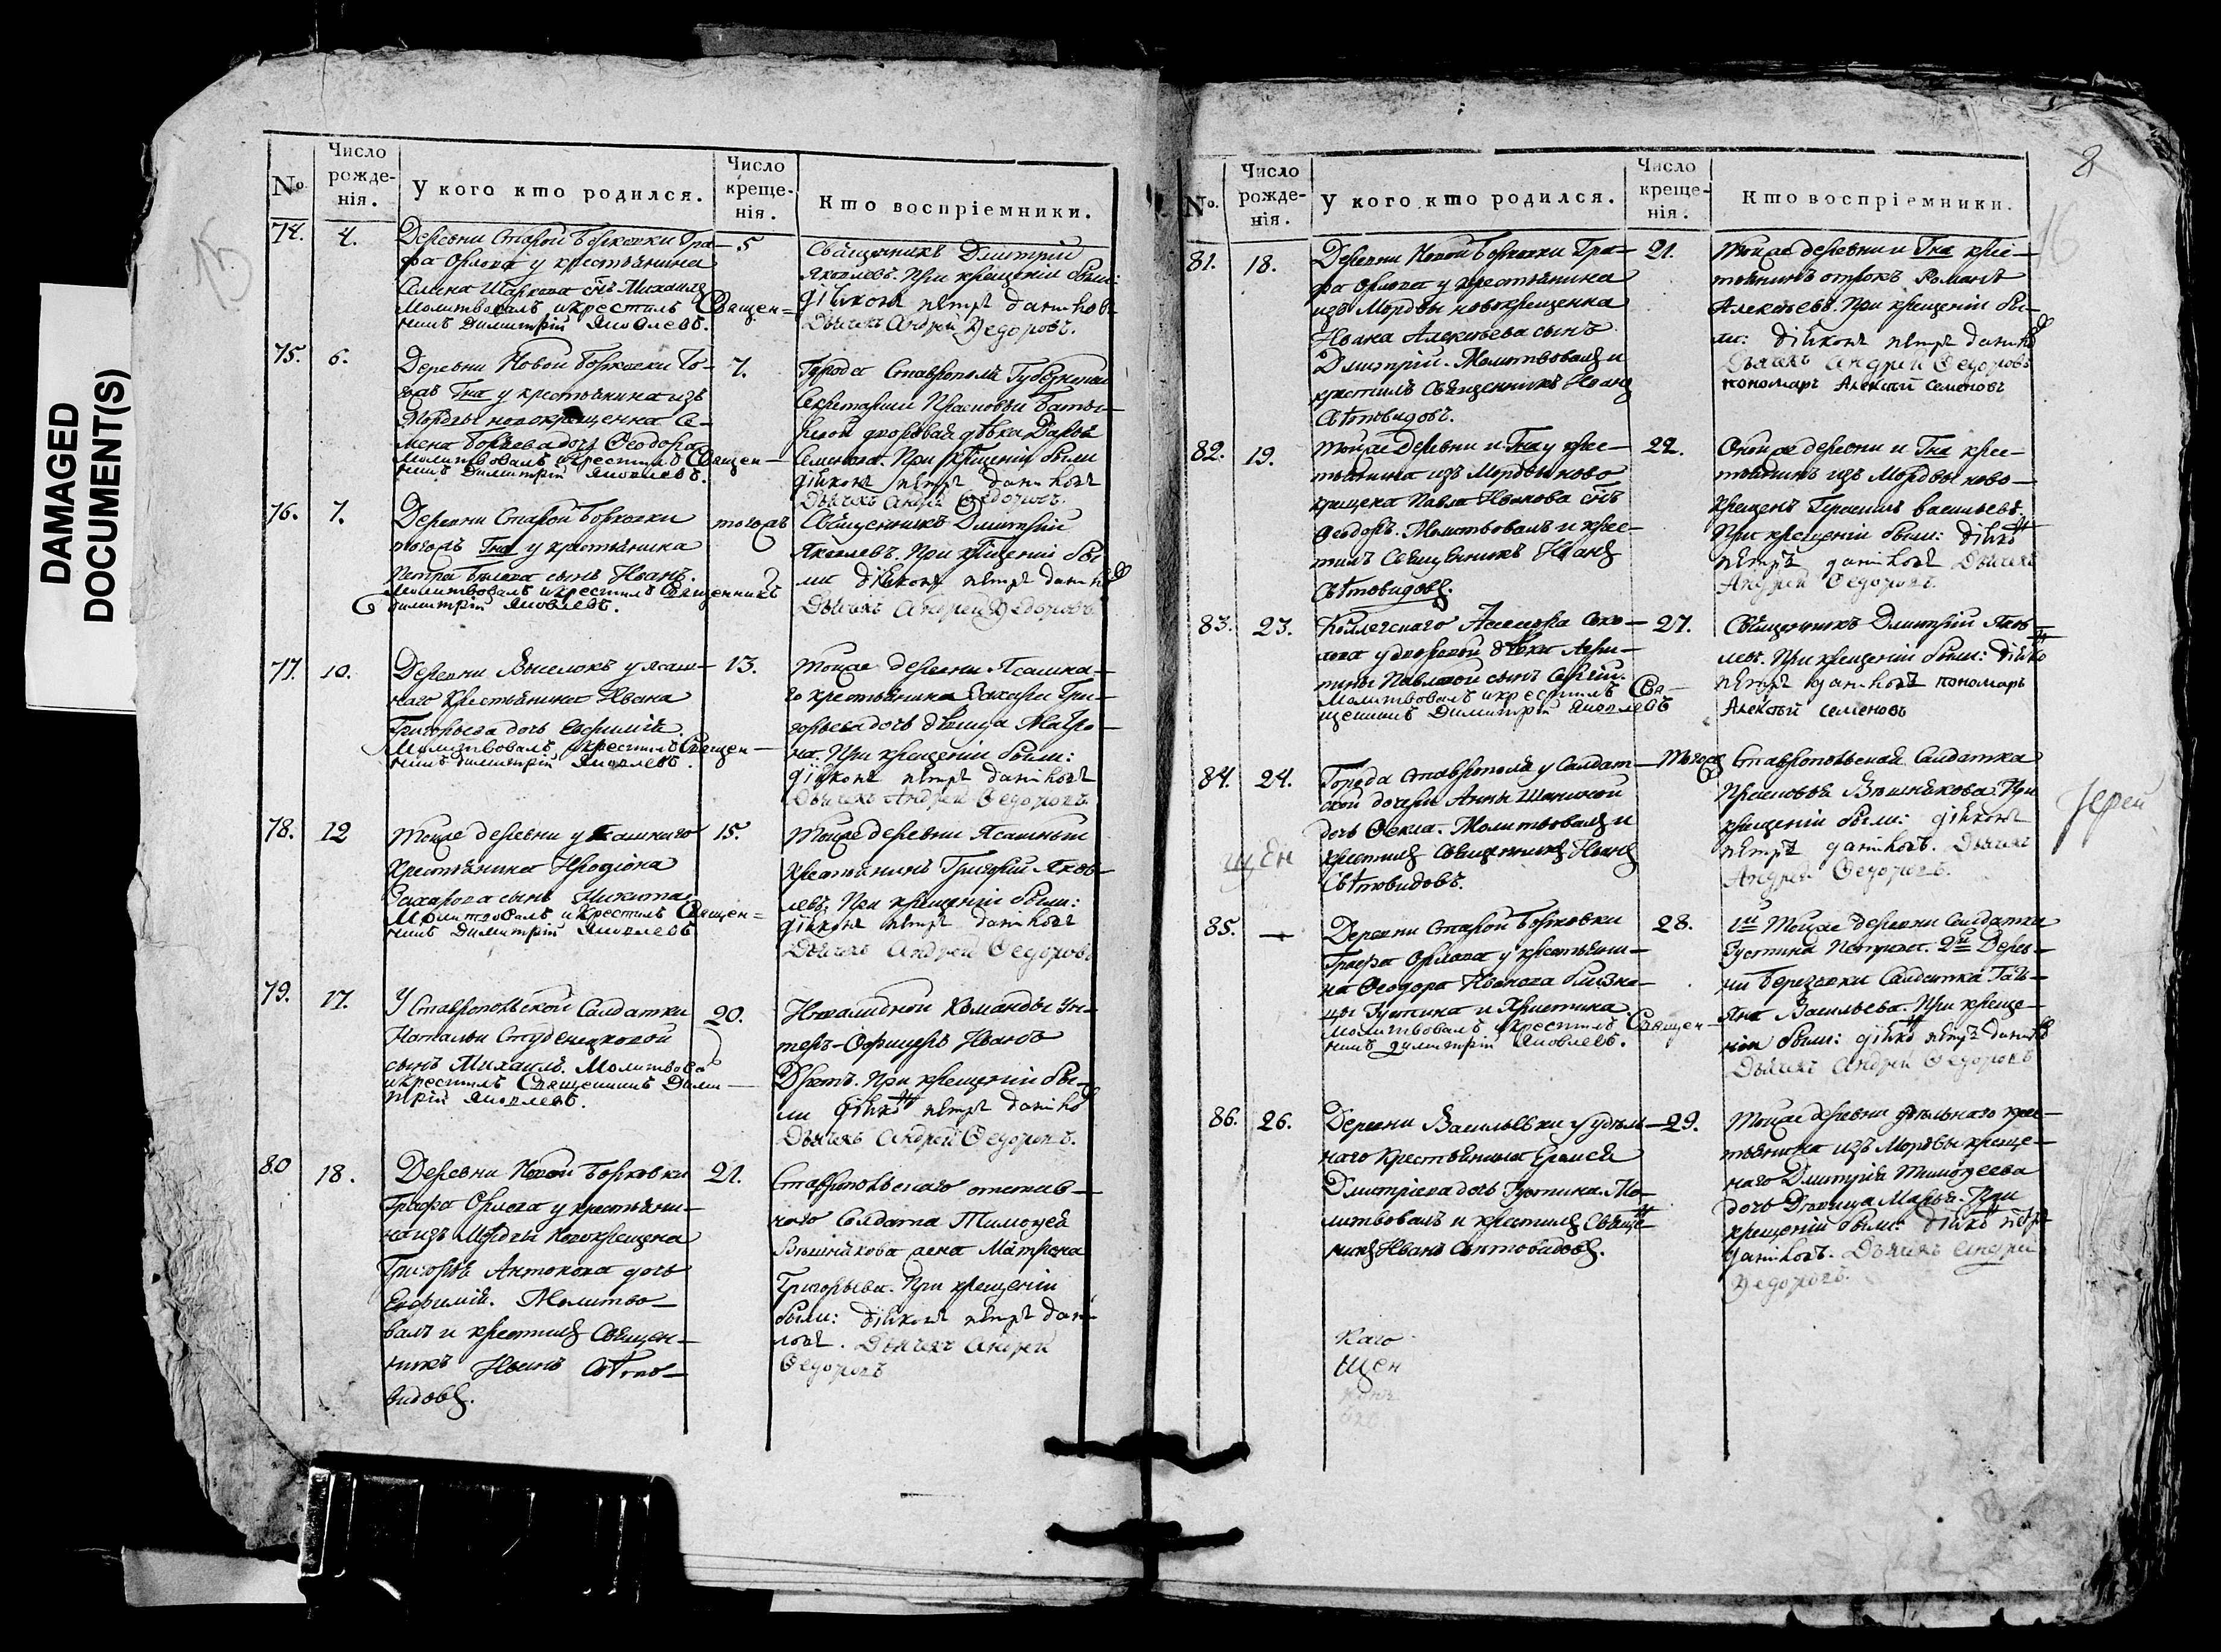 DAMAGED
DOCUMENT(S)
15
№
Число рожденія.
У кого кто родился.
Число крещенія.
Кто воспріемники.
74.
4.
Деревни Старой Борковки Гра-
фа Орлова у крестьянина
снъ Михаилъ
Молитвовалъ и крестилъ Священ=
никъ Димитрій Яковлевъ.
5
Священникъ Дмитрій
Яковлевъ. При крещеніи были:
діяконъ петръ
Дьячекъ Андрей Ѳедоровъ.
75.
6.
Деревни Новой Борковки То-
гожъ Гна у крестьянина изъ
Мордвы новокрещенна Се-
мена дочь Ѳеодора
Молитвовалъ и крестилъ Священ-
никъ Димитрій Яковлевъ.
7.
Города Ставрополя Губернскои
Секретарши Прасковьи
дворовая дѣвка Дарья
Семенова. При крещеніи были
діяконъ петръ
Дьячекъ Андрей Ѳедоровъ.
76.
7.
Деревни Старой Борковки
тогожъ Гна у крестьянина
Петра Белова сынъ Иванъ.
Молитвовалъ и крестилъ Священникъ
Димитрій Яковлевъ.
тогожъ
Священникъ Дмитрій
Яковлевъ. При крещеніи бы-
ли діяконъ петръ
Дьячекъ Андрей Ѳедоровъ
77.
10.
Деревни Выселокъ у ясаш-
наго Крестьянина Ивана
Григорьева дочь Евфимія.
Молитвовалъ и крестилъ Священ-
никъ Димитрій Яковлевъ.
13.
Тойже деревни Ясашна-
го крестьянина Захара Гри-
горьева дочь дѣвица Матро-
на. При крещеніи были:
діяконъ петръ
Дьячекъ Андрей Ѳедоровъ
78.
12
Тойже деревни у Ясашнаго
Крестьянина Иродіона
Захарова сынъ Никита
Молитвовалъ и крестилъ Священ=
никъ Димитрій Яковлевъ
15.
Тойже деревни Ясашный
Крестьянинъ Григорій Яков-
левъ. При крещеніи были:
діяконъ петръ
Дьячекъ Андрей Ѳедоровъ
79.
17.
У Ставропольской Салдатки
Натальи Студенецковой
сынъ Михаилъ. Молитвова
и крестилъ Священникъ Дими-
трій Яковлевъ.
20.
Инвалидной Команды Ун-
теръ-Офицеръ Иванъ
При крещеніи бы-
ли діяко петръ
Дьячекъ Андрей Ѳедоровъ.
80
18.
Деревни Новой Борковки
Графа Орлова у крестьяни-
на изъ Мордвы Новокрещена
Григорья Антонова дочь
Евфимія. Молитво-
валъ и крестилъ Священ-
никъ Иванъ Свѣто-
видовъ.
21.
Ставропольскаго отстав-
наго Солдата Тимофея
Вишнякова жена Матрена
Григорьева. При крещеніи
были: діяконъ петръ дани-
ловъ. Дьячекъ Андрей
Ѳедоровъ
8
16
№.
Число рожденія.
У кого кто родился.
Число крещенія.
Кто воспріемники.
81.
18.
Деревни Новой Борковки Гра-
фа Орлова у крестьянина
изъ Мордвы новокрещенна
Ивана Алексѣева сынъ
Дмитрій. Молитвовалъ и
крестилъ Священникъ Иванъ
Свѣтовидовъ.
21.
Тойже деревни и Гна крес-
тьянинъ отрокъ Романъ
Алексѣевъ. При крещеніи бы-
ли: діяконъ петръ
Дьячекъ Андрей Ѳедоровъ
пономарь Алексѣй Семеновъ
82.
19.
Тойже деревни и Гна у крес-
тьянина изъ Мордвы ново
крещена Павла Иванова снъ
Ѳеодоръ. Молитвовалъ и крес-
тилъ Священникъ Иванъ
Свѣтовидовъ.
22.
Оной же деревни и Гна крес-
тьянинъ изъ Мордвы ново-
крещенъ Герасимъ Васильевъ.
При крещеніи были: діяко
петръ даниловъ Дьячекъ
Андрей Ѳедоровъ.
83.
23.
Коллежскаго Асессора Соко-
лова у дворовой дѣвки
Павловой сынъ Сергій.
Молитвовалъ и крестилъ Свя-
щенникъ Димитрій Яковлевъ
27.
Священникъ Дмитрій Яков-
левъ. При крещеніи были: діяко
петръ даниловъ пономарь
Алексѣй Семеновъ
84.
24.
Города Ставрополя у Салдат-
ской дочери Анны
дочь Ѳекла. Молитвовалъ и
крестилъ Священникъ Иванъ
Свѣтовидовъ.
Тогожъ
Ставропольская Салдатка
Прасковья Вишнякова. При
крещеніи были: діяконъ
петръ даниловъ. Дьячекъ
Андрей Ѳедоровъ.
щен
Іерей
85.
—
Деревни Старой Борковки
Графа Орлова у крестьяни-
на Ѳеодора Иванова близне-
цы Іустина и Христина
Молитвовалъ и крестилъ Священ-
никъ Димитрій Яковлевъ.
28.
1й Тойже деревни Салдатка
Іустина Петрова. 2й Дерев-
ни Березовки Салдатка Тать-
яна Васильева. При креще-
ніи были: діяко петръ
Дьячекъ Андрей Ѳедоровъ
86.
26.
Деревни Васильевки у удѣль-
наго Крестьянина Ермеся
Дмитріева дочь Іустина. Мо-
литвовалъ и крестилъ Свяще-
никъ Иванъ Свѣтовидовъ.
29.
Тойже деревни удѣльнаго крес-
тьянина изъ Мордвы креще-
наго Дмитрія Тимофеева
дочь Дѣвица Марья. При
крещеніи были: діяко петръ
даниловъ. Дьячекъ Андрей
Ѳедоровъ.
Каго
щен